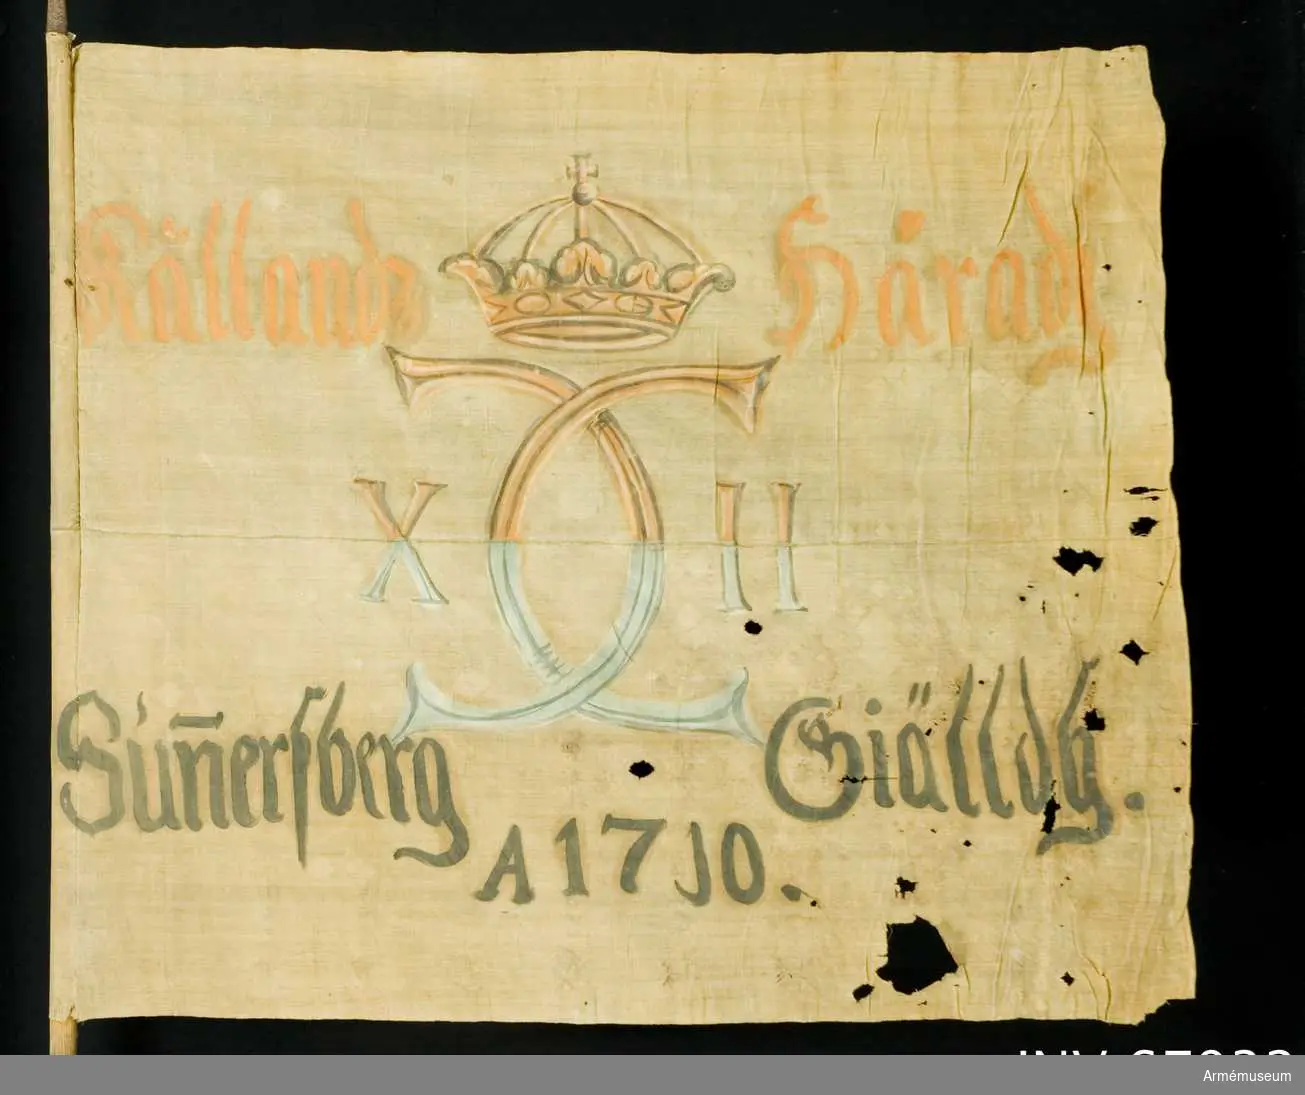 Källands Häradz
X II
Sim̄ersberg Giälldh.
A 1710.
Armémuseum